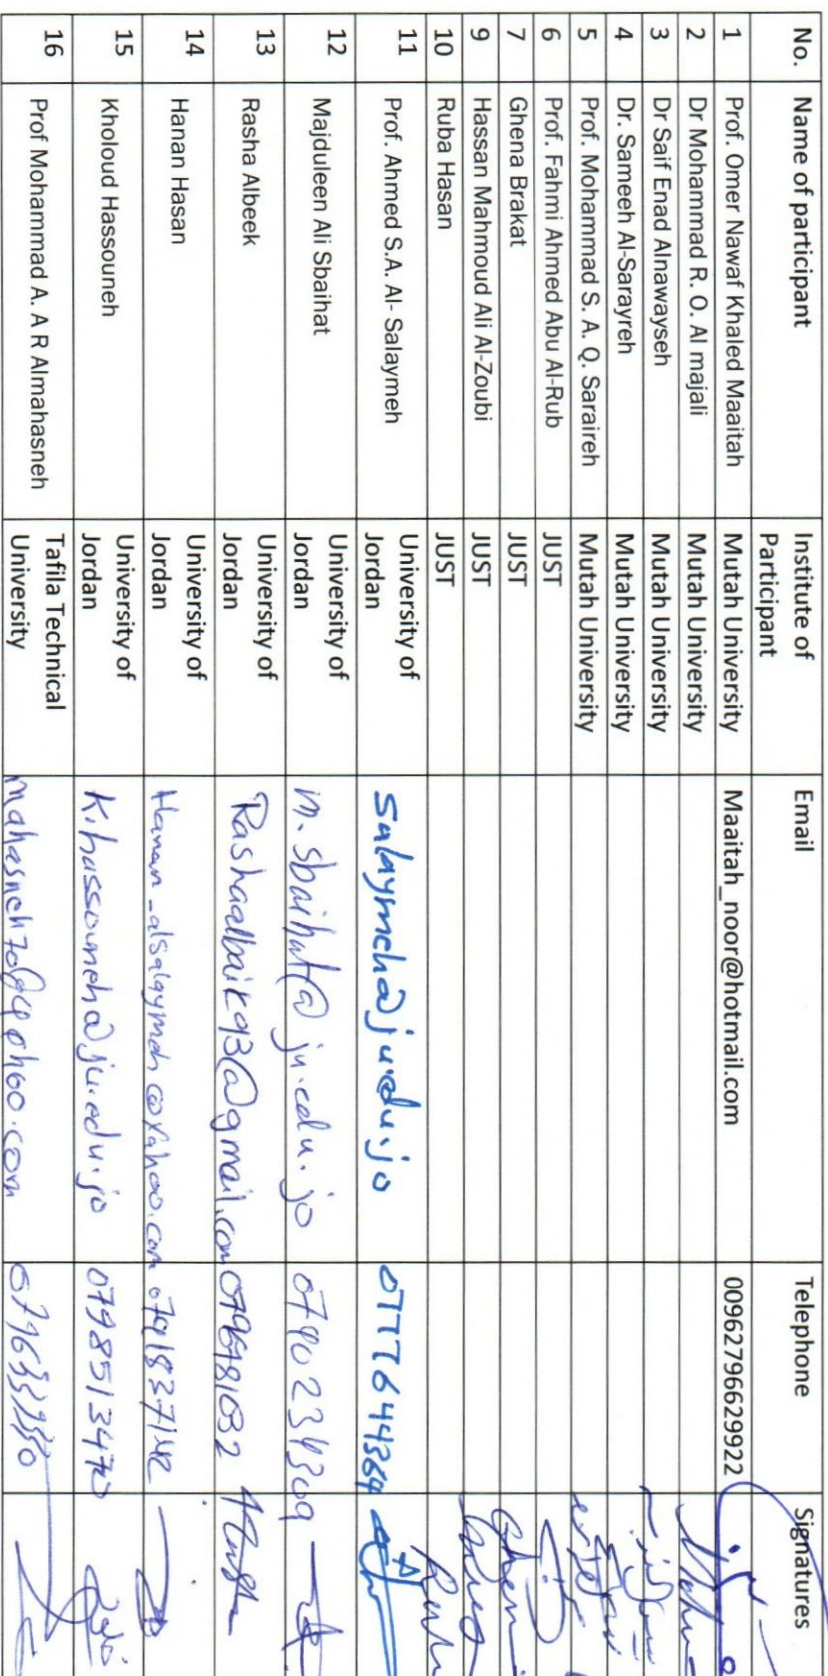 No. Name of participant Institute of Participant Email Telephone Signatures
1 Prof. Omer Nawaf Khaled Maaitah Mutah University Maaitah_noor@hotmail.com 00962796629922
2 Dr Mohammad R. O. Al majali Mutah University
3 Dr Saif Enad Alnawayseh Mutah University
4 Dr. Sameeh Al-Sarayreh Mutah University
5 Prof. Mohammad S. A. Q. Saraireh Mutah University
6 Prof. Fahmi Ahmed Abu Al-Rub JUST
7 Ghena Brakat JUST
9 Hassan Mahmoud Ali Al-Zoubi JUST
10 Ruba Hasan JUST
11 Prof. Ahmed S.A. Al- Salaymeh University of Jordan salaymeh@ju.edu.jo 0777644364
12 Majduleen Ali Sbaihat University of Jordan m.sbaihat@ju.edu.jo 0790234309
13 Rasha Albeek University of Jordan Rashaalbaik93@gmail.com 0796981032
14 Hanan Hasan University of Jordan Hanan_alsalaymeh@yahoo.com
15 Kholoud Hassouneh University of Jordan k.hassouneh@ju.edu.jo 0798513470
16 Prof Mohammad A. A R Almahasneh Tafila Technical University mahasneh70@yahoo.com